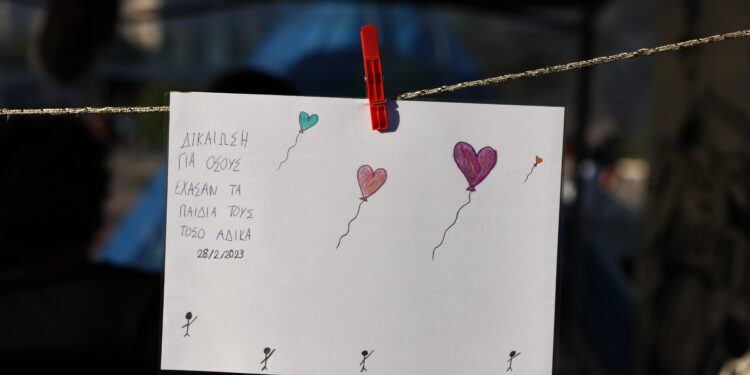 ΔΙΚΑΙΩΣΗ
ΓΙΑ ΟΣΟΥΣ
ΕΧΑΣΑΝ ΤΑ
ΠΑΙΔΙΑ ΤΟΥΣ
ΤΟΣΟ ΑΔΙΚΑ
28/2/2023